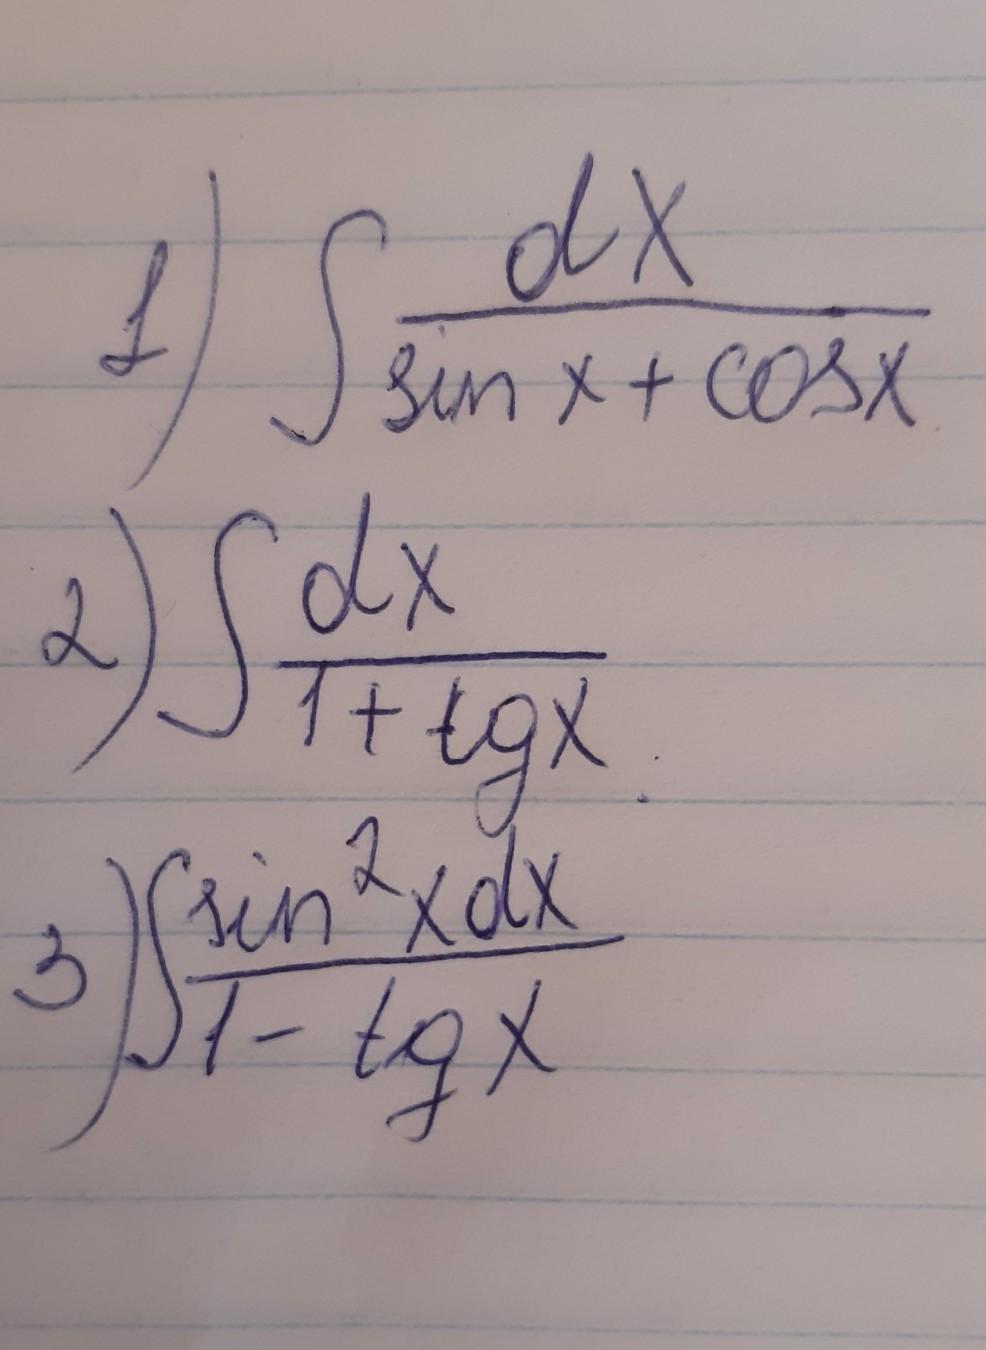 1) ∫ dx / (sin x + cos x)
2) ∫ dx / (1 + tg x)
3) ∫ sin²x dx / (1 - tg x)